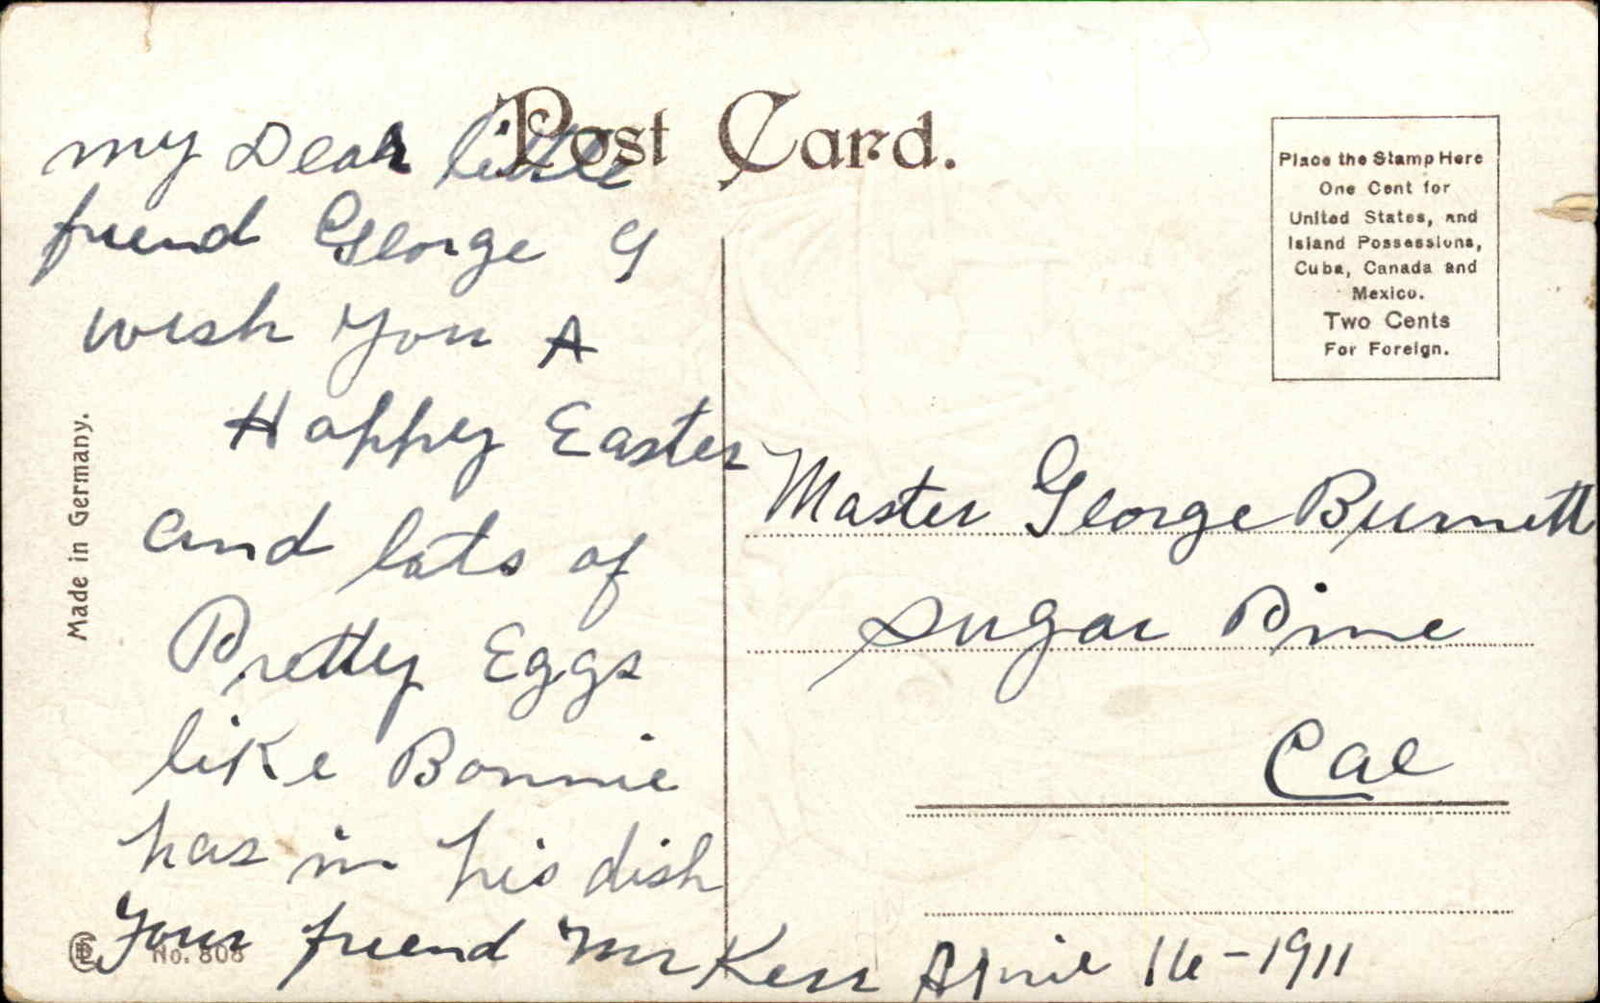 Post Card.
my Dear little
friend George I
wish you A
Happy Easter
and lots of
Pretty Eggs
like Bonnie
has in his dish
Your friend Mr Kerr April 16-1911
Place the Stamp Here
One Cent for
United States, and
Island Possessions,
Cuba, Canada and
Mexico.
Two Cents
For Foreign.
Master George Burnett
Sugar Pine
Cal
Made in Germany.
No. 808